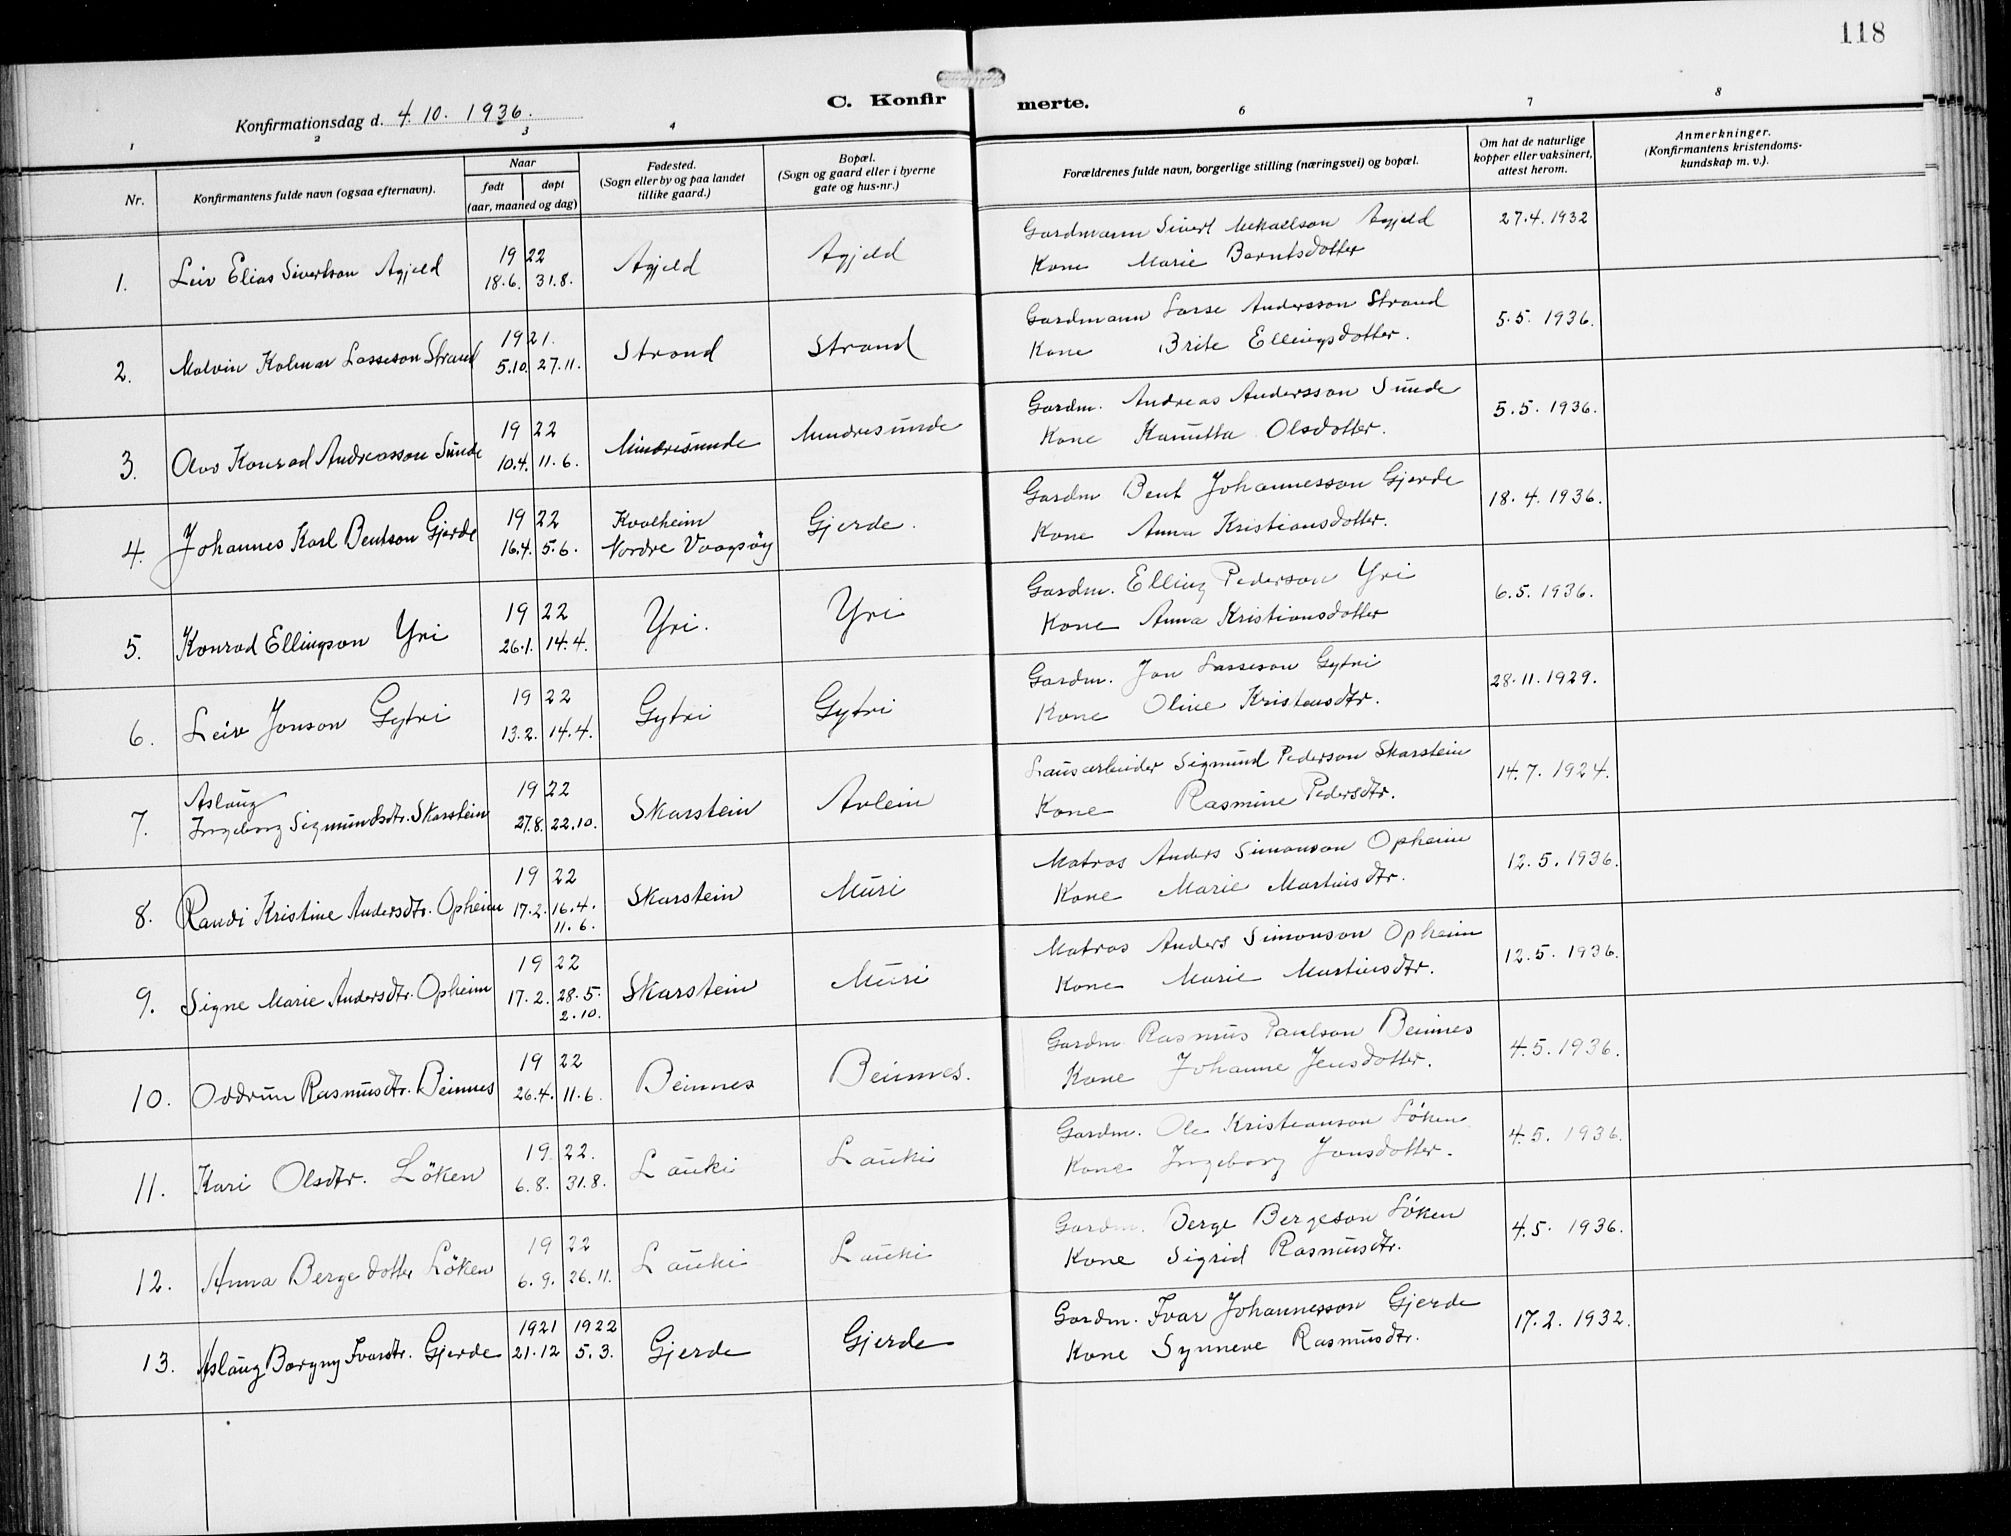 118
C. Konfirmerte.
Konfirmationsdag d. 4. 10. 1936.
1 2 3 4 6 7 8
Nr.
Konfirmantens fulde navn (ogsaa efternavn).
Naar
født døpt
(aar, maaned og dag)
Fødested.
(Sogn eller by og paa landet
tillike gaard.)
Bopæl.
(Sogn og gaard eller i byerne
gate og hus-nr.)
Forældrenes fulde navn, borgerlige stilling (næringsvei) og bopæl.
Om hat de naturlige
kopper eller vaksinert,
attest herom.
Anmerkninger.
(Konfirmantens kristendoms-
kundskap m. v.).
1. Leiv Elias Sivertson Agjeld 1922 18.6. 31.8. Agjeld Agjeld
Gardmann Sivert Mikaelson Agjeld 27.4.1932
Kone Marie Berntsdotter
2. Malvin Kolmar Lasseson Strand 1921. 5.10. 27.11. Strand Strand
Gardmann Lasse Andersson Strand 5.5. 1936.
Kone Brite Ellingsdotter.
3. Olav Konrad Andreasson Sunde 1922 10.4. 11.6. Mindresunde Mindresunde
Gardm. Andreas Andersson Sunde 5.5. 1936.
Kone Kanutta Olsdotter.
4. Johannes Karl Bentson Gjerde 1922 16.4. 5.6. Kvalheim Nordre Vaagsöy Gjerde.
Gardm Bent Johannesson Gjerde 18. 4. 1936.
Kone Anna Kristiansdotter.
5. Konrad Ellingson Yri 1922 26.1. 14.4. Yri. Yri
Gardm. Elling Pederson Yri 6.5. 1936.
Kone Anna Kristiansdotter
6. Leiv Jonson Gytri 1922 13.2. 14.4. Gytri Gytri
Gardm. Jon Lasseson Gytri 28.11.1929.
Kone Oline Kristensdtr.
7. Aslaŭg
Ingeborg Sigmundsdtr. Skarstein 1922 27.8. 22.10. Skarstein Avlein
Lausarbeider Sigmund Pederson Skarstein 14.7. 1924.
Kone Rasmine Pedersdtr.
8. Randi Kristine Andersdtr. Opheim 1922 17.2. 16.4. 11.6. Skarstein Mŭri
Matros Anders Simonson Opheim 12.5. 1936.
Kone Marie Martinsdtr.
9. Signe Marie Andersdtr. Opheim 1922 17.2. 28.5. 2.10. Skarstein Mŭri
Matros Anders Simonson Opheim 12.5. 1936.
Kone Marie Martinsdtr.
10. Oddrŭn Rasmŭsdtr. Beinnes 1922 26.4. 11.6. Beinnes Beinnes.
Gardm Rasmus Paulson Beinnes 4.5. 1936.
Kone Johanne Jensdotter.
11. Kari Olsdtr. Löken 1922. 6.8. 31.8. Laŭki Laŭki
Gardm. Ole Kristianson Löken 4.5. 1936.
Kone Ingeborg Jonsdotter.
12. Anna Bergedotter Löken 1922 6.9. 26.11. Laŭki Laŭki
Gardm. Berge Bergeson Löken 4.5. 1936.
Kone Sigrid Rasmusdtr.
13. Aslaŭg Borgny Ivarsdtr. Gjerde 1921 21.12 1922 5.3. Gjerde Gjerde
Gardm. Ivar Johannesson Gjerde 17.2. 1932.
Kone Synneve Rasmŭsdtr.